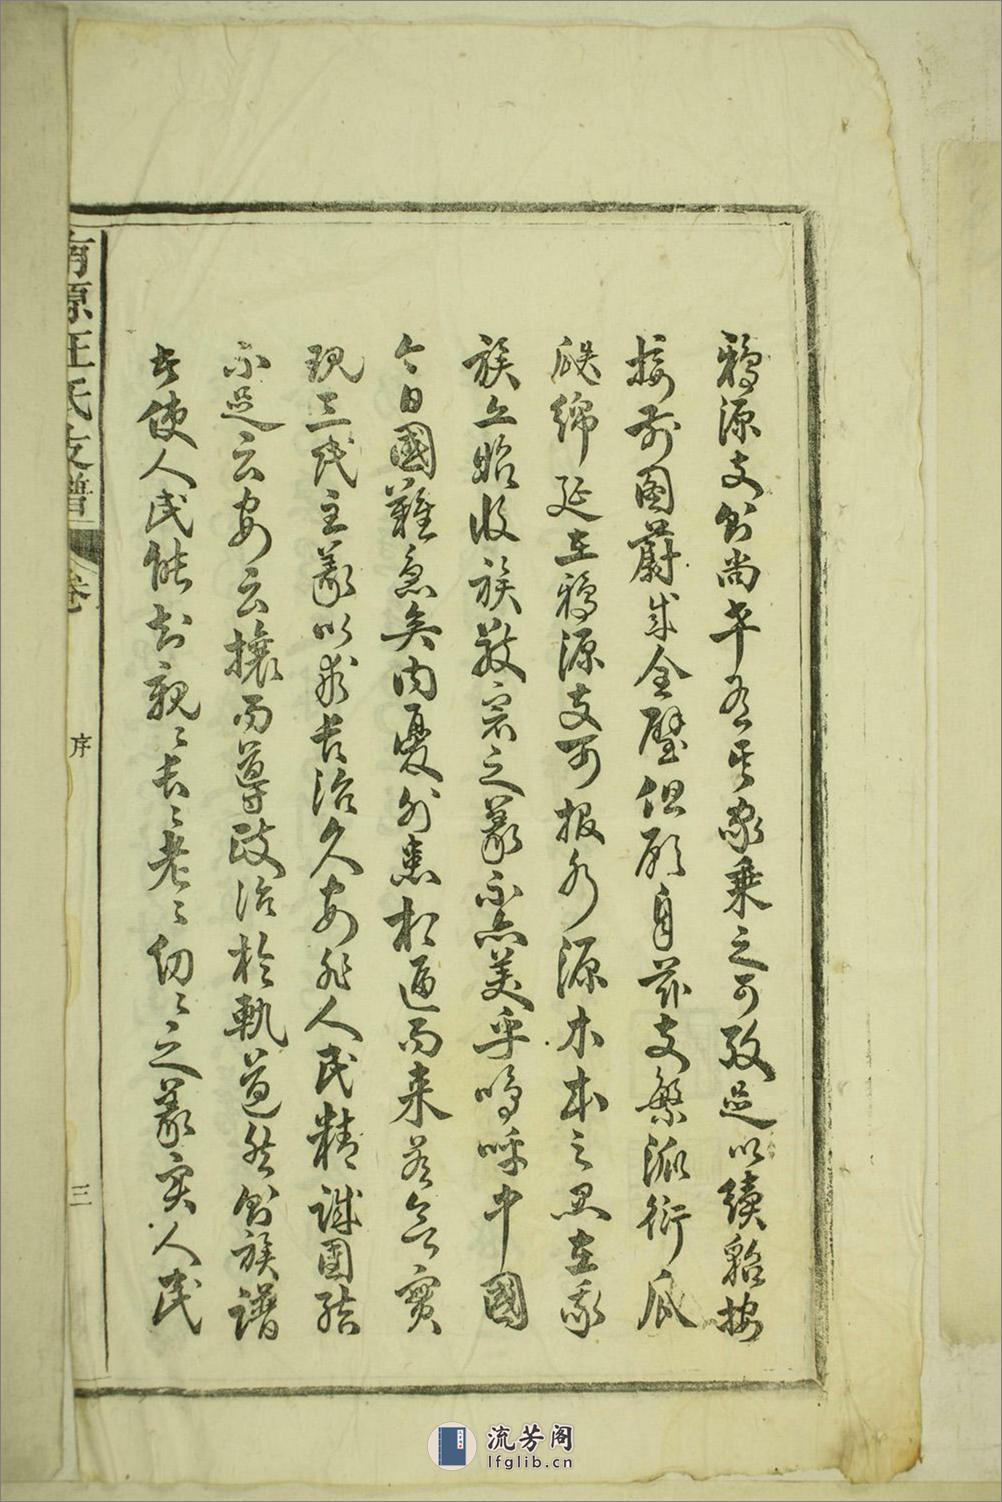 鴉源支則尚卒有其家乘之可攷足以續貂按
接前圖蔚成全璧但願自茲支繁派衍瓜
瓞綿延在鴉源支可報水源木本之思在我
族亦昭收族敬宗之義不亦美乎嗚呼中國
今日國難急矣內憂外患相逼而來若欲實
現三民主義以求長治久安非人民精誠團結
不足云安云攘而導政治於軌道然則族譜
者使人民能知親〻長〻老〻幼〻之義实人民
南源汪氏支譜
卷
序
三
流芳阁
lfglib.cn